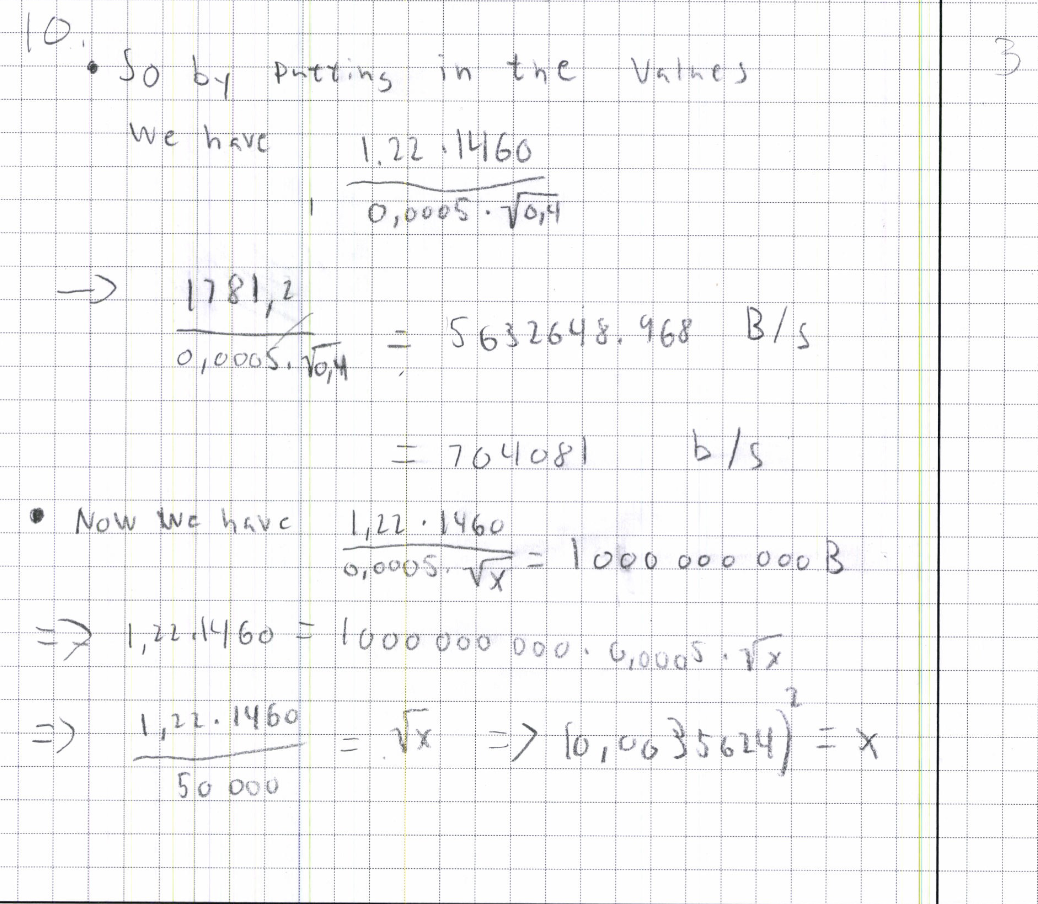 10.
3
• So by putting in the values
We have 1.22 · 1460 / 0,0005 · √0,4
→ 1781,2 / 0,0005 · √0,4 = 5632648.968 B/s
= 704081 b/s
• Now we have 1,22 · 1460 / 0,0005 · √x = 1000 000 000 B
=> 1,22 · 1460 = 1000 000 000 · 0,0005 · √x
=> 1,22 · 1460 / 50 000 = √x => (0,0035624)² = x